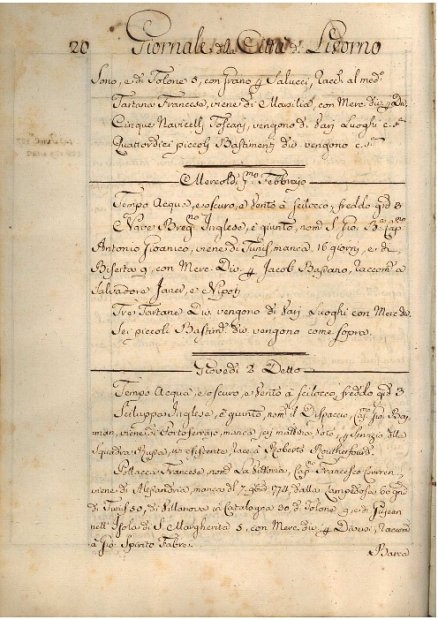 20 Giornale della Città di Livorno
Sono, e di Tolone 5, con grano Salucci, Racc. al med.
Tartana Francese, viene di Marsilia, con Merc. Div.
Cinque Navicelli Toscani, vengono di varj Luoghi c. s.
Quattordici piccoli Bastimenti Div. vengono c. s.
Mercoldì pmo Febbrajo
Tempo Acqua, e oscuro, e Vento à Scilocco, freddo gdi 3
Nave Inglese, è giunto, nom. S. Gio. Ba Cap.no
Antonio Gioanico, viene di Tunis, manca 16 giorni, e di
Biserta 9, con Merc. Div. Jacob Bassano, Raccom. a
Salvadore e Nipoti
Tre Tartane Div. vengono di varj Luoghi con Merc. Div.
Sei piccoli Bastim. div. vengono come sopra.
Giovedì 2 Detto
Tempo Acqua, e oscuro, e Vento à Scilocco, freddo gdi 3
Scialuppa Inglese, è giunto, nom. il Dispaccio, Cap. Gio.
man, viene di Portoferrajo, manca jeri mattina, Servizio della
Squadra Russa, ivi esistente, Racc. à Roberto Rutherfurd.
Pollacca Francese, nom. La Vittoria, Cap. Francesco
viene di Alesandria, manca dl 7. 9bre 1774, dalla Lampedosa 60 gni
di Tunis 50, di Villanova in Catalogna 30, di Tolone 9, e di
nell'Isola di S. Margherita 5, con Merc. div. Diversi, Raccom.
à Gio: Spirito Fabre.
Barca